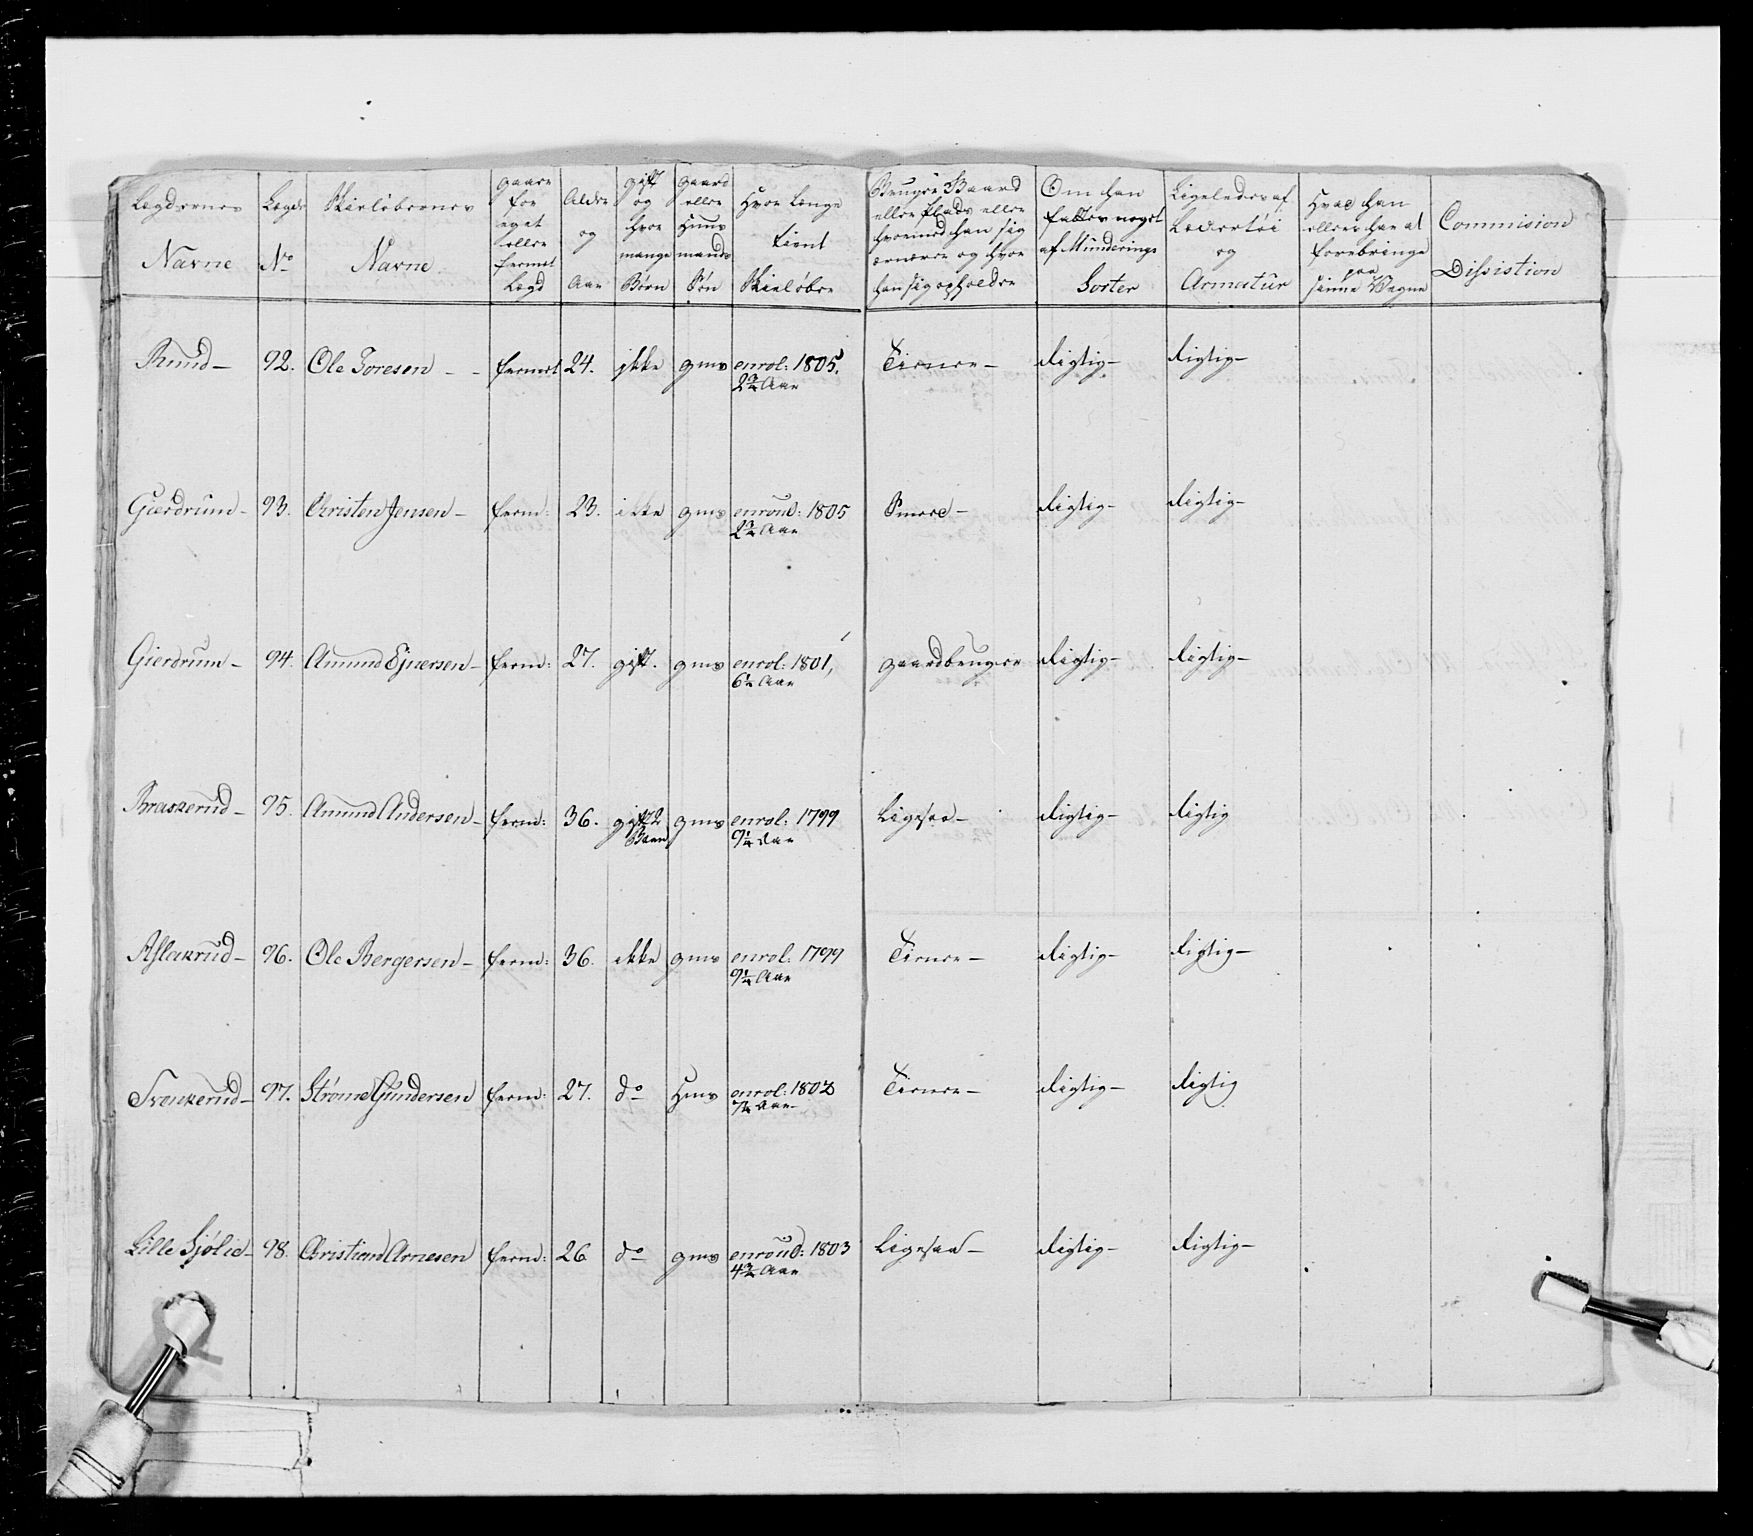 Lægdernes Navne
Lægds No
Skieløbernes Navne
gaaer for eget eller fermet Lægd
Alder og Aar
gift og hvor mange Børn
gaard eller Huusmands Søn
Hvor Længe tient Skieløber
Bruger Gaard eller Plads eller hvormed han sig ernærer og hvor han sig opholder
Om han fattes noget af Munderings Sorter
Ligeledes af Lædertöi og Armatûr
Hvad han ellers har at forebringe paa sinne Vegne
Commision Dissistion
Ruud - 92. Ole Toresen - - fermet 24. ikke gms enrol: 1805. 2 3/4 Aar Tiener - Rigtig - Rigtig -
Gierdrum - 93. Christen Jensen - ferm: 23. ikke gms enroul: 1805 2 3/4 Aar Smed - Rigtig - Rigtig -
Gierdrum - 94. Amund Ejnersen - ferm: 27. gift. gms enrol: 1801, 6 1/4 Aar gaardbruger Rigtig - Rigtig -
Braskerud - 95. Amund Andersen - ferm: 36. gift 2 Børn gms enrol: 1799 9 1/4 Aar Ligesaa - Rigtig - Rigtig
Aslakrud - 96. Ole Bergersen - ferm: 36. ikke gms enrol: 1799 9 1/4 Aar Tiener - Rigtig - Rigtig -
97. Strømne Gundersen ferm: 27. do Hms enrol: 1802 Aar - Tiener - Rigtig - Rigtig
Lille Sjølie - 98. Christian Arnesen ferm: 26 do gms enroul: 1803 4 3/4 Aar Ligesaa - Rigtig - Rigtig -